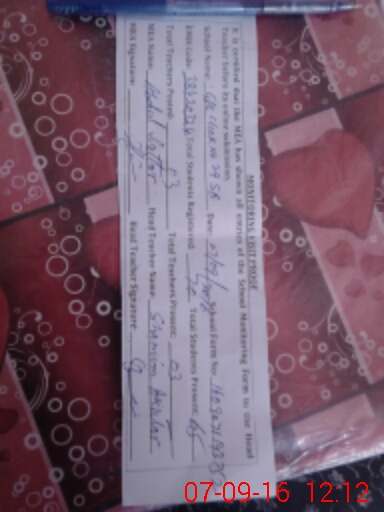 MONITORING VISIT PROOF
It is certified that the MEA has shown all entries of the School Monitoring Form to the Head
Teacher before its online submission.
School Name: Chak No 29 SB Date: School Form No.
EMIS Code: Total Students Registered: Total Students Present: 65
Total Teachers Posted: 03 Total Teachers Present: 03
MEA Name: Abdul Sattar Head Teacher Name: Shamim Akhtar
MEA Signature: Head Teacher Signature
07-09-16 12:12